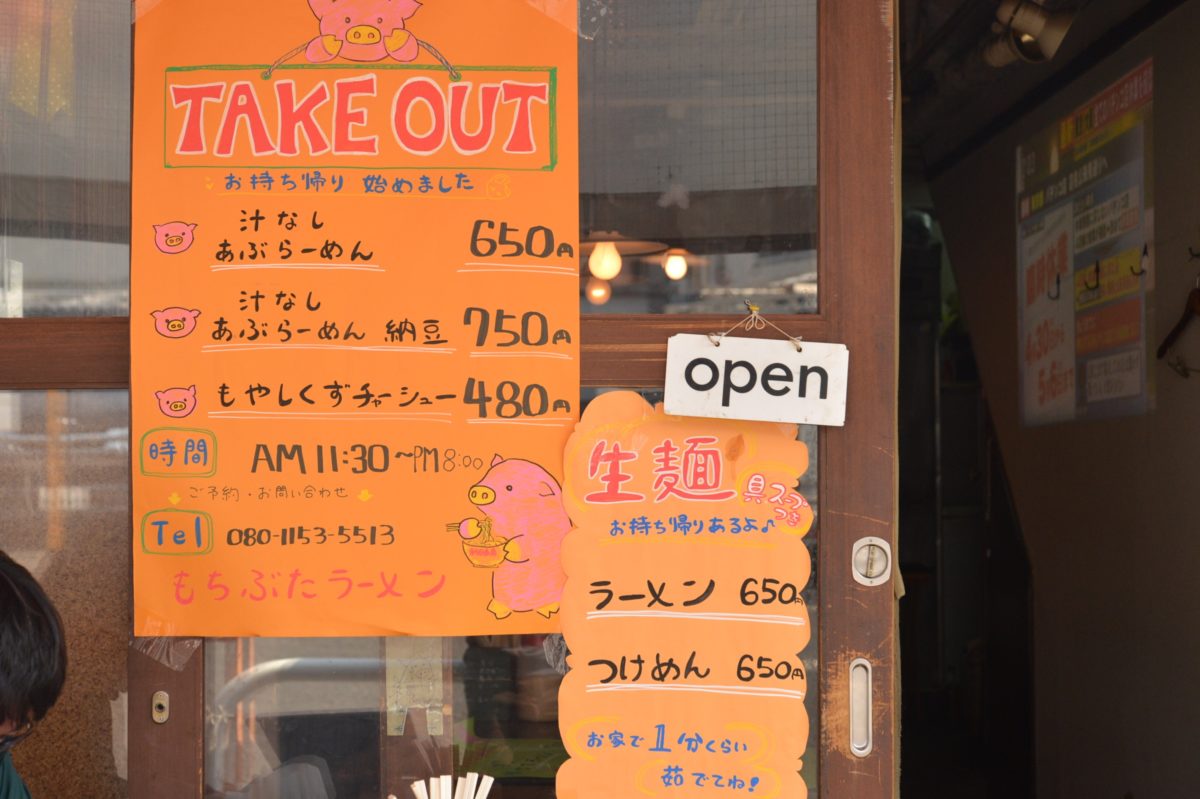 TAKE OUT
お持ち帰り 始めました
汁なし
あぶらーめん 650円
汁なし
あぶらーめん 納豆 750円
もやしくずチャーシュー 480円
時間 AM 11:30~PM 8:00
ご予約・お問い合わせ
Tel 080-1153-5513
もちぶたラーメン
open
生麺 具スープつき
お持ち帰りあるよ♪
ラーメン 650円
つけめん 650円
お家で1分くらい
茹でてね!